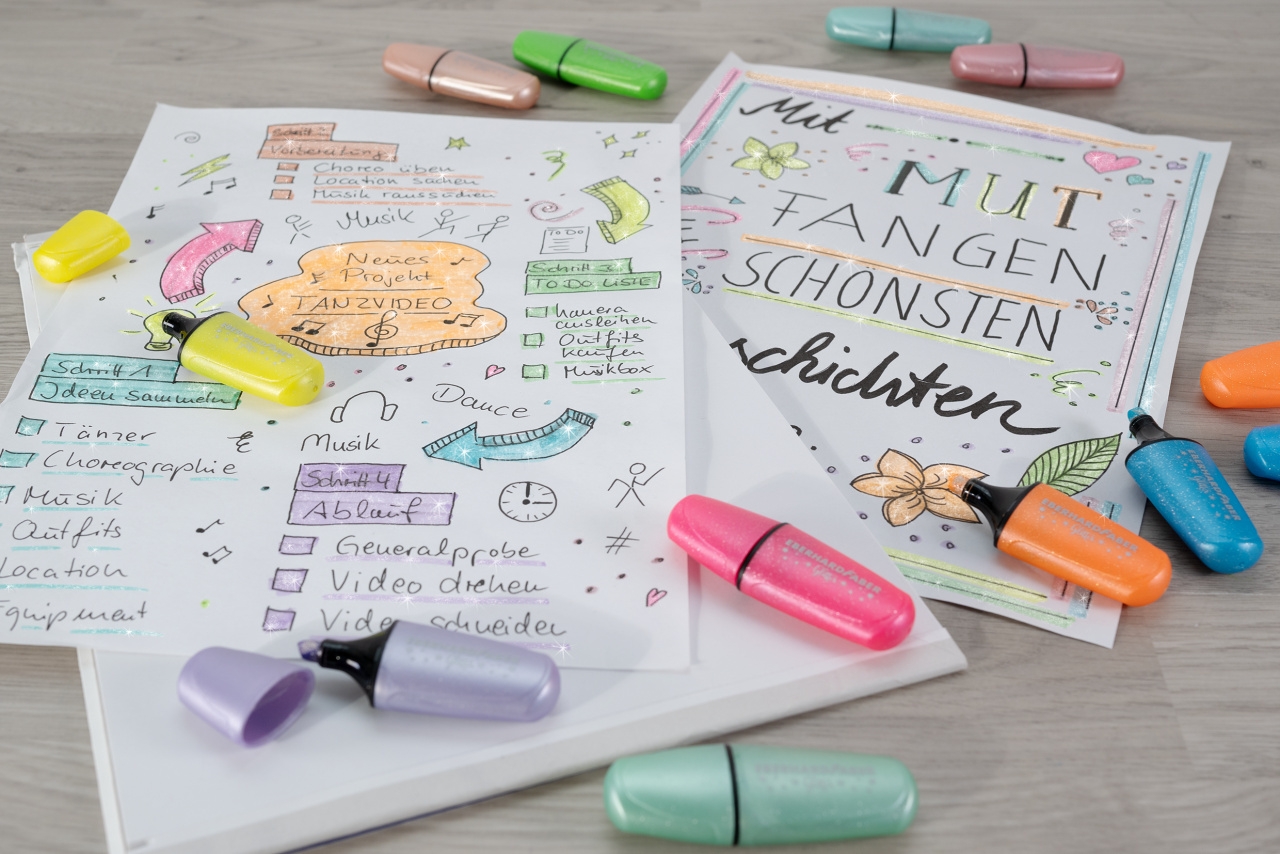 Schritt 2
Vorbereitung
Choreo üben
Location suchen
Musik raussuchen
Musik
Neues
Projekt
TANZVIDEO
TO DO
Schritt 3
TO DO LISTE
Kamera
ausleihen
Outfits
kaufen
Musikbox
Schritt 1
Ideen sammeln
Tänzer
Choreographie
Musik
Outfits
Location
Equipment
Dance
Musik
Schritt 4
Ablauf
Generalprobe
Video drehen
Video schneiden
#
Mit
MUT
FANGEN
SCHÖNSTEN
schichten
EBERHARD FABER
EBERHARD FABER